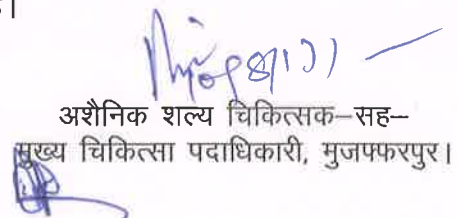 है।
अशैनिक शल्य चिकित्सक–सह–
मुख्य चिकित्सा पदाधिकारी, मुजफ्फरपुर।